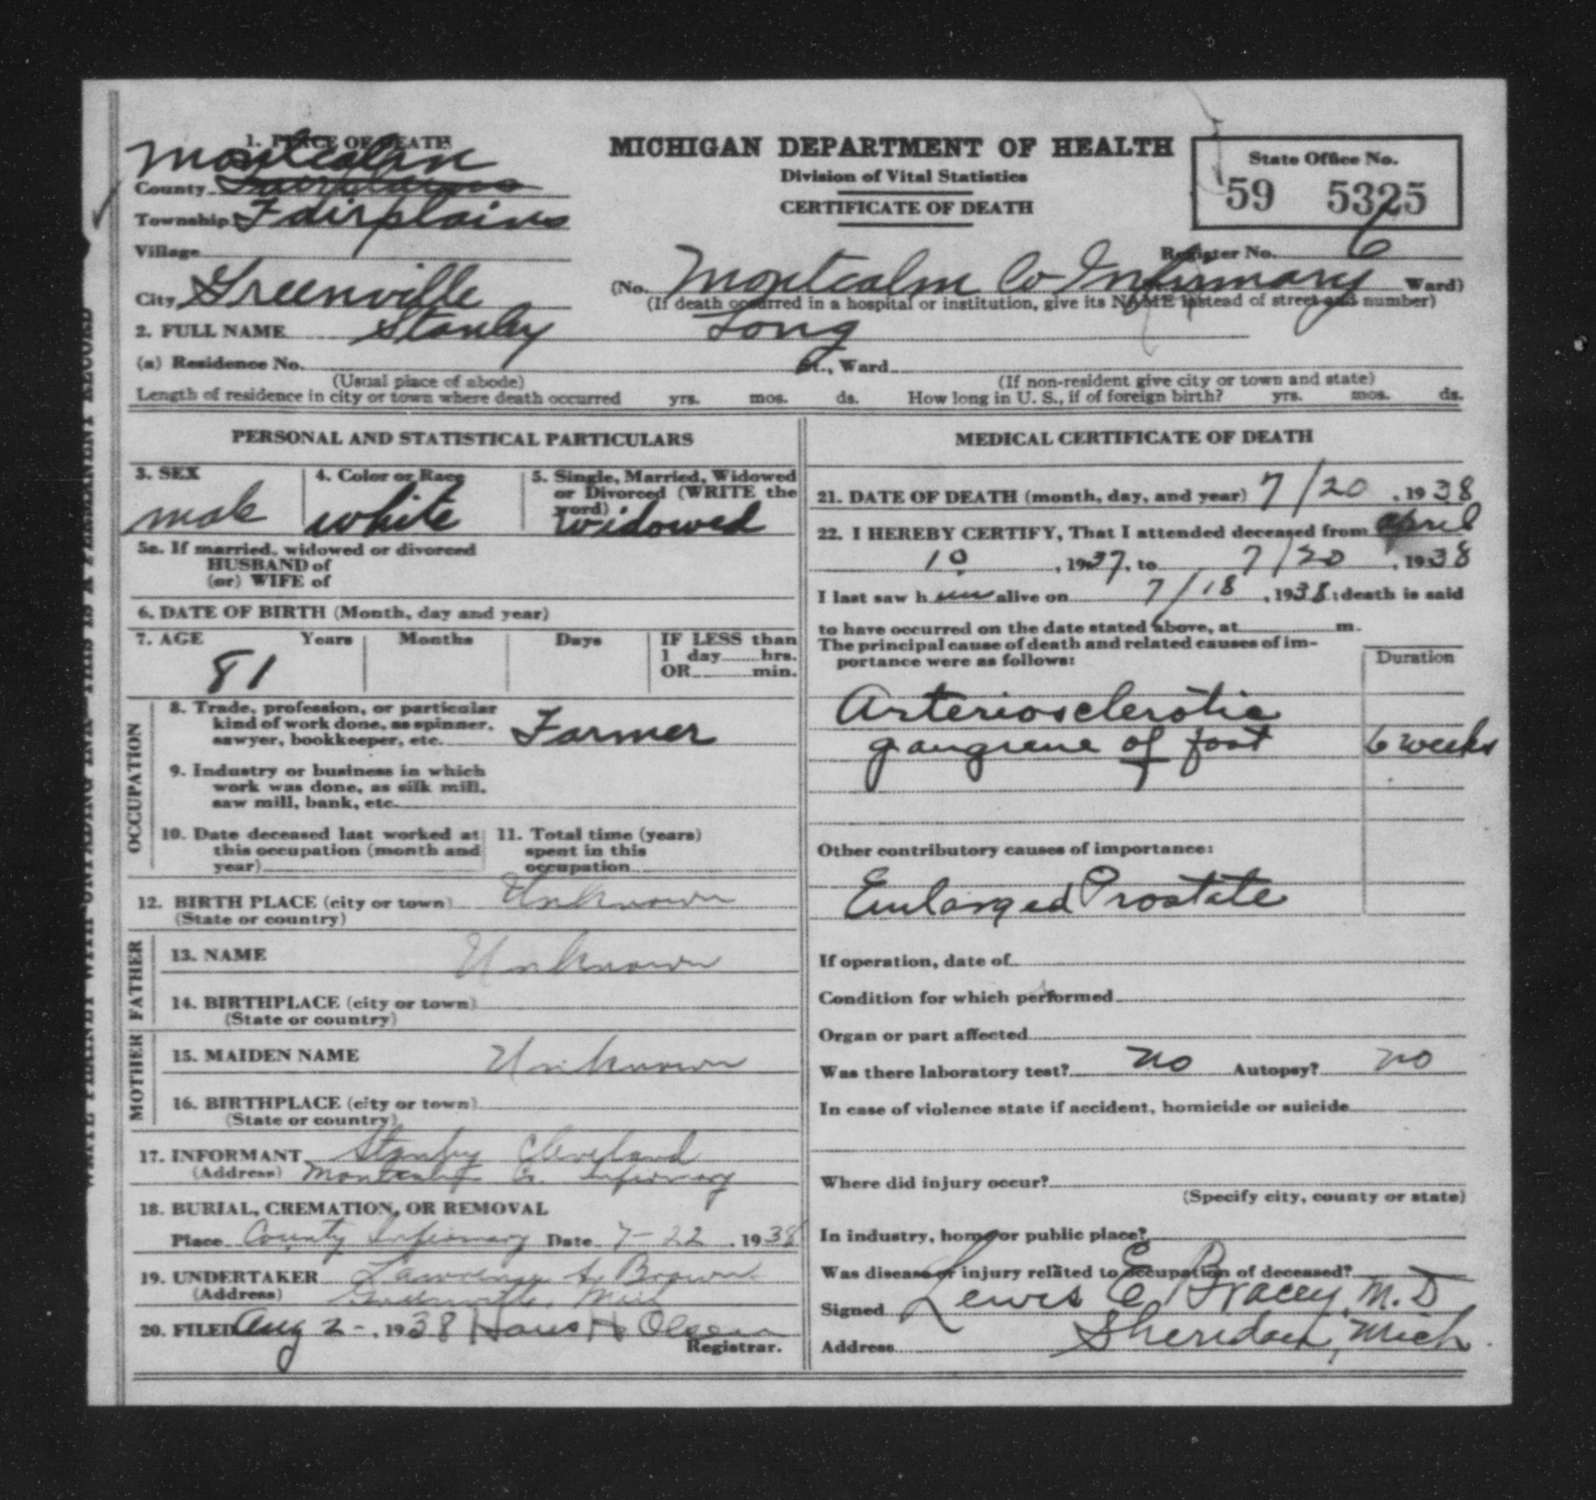 1. PLACE OF DEATH
Montcalm
County Fairplains
Township Fairplains
Village
City Greenville
MICHIGAN DEPARTMENT OF HEALTH
Division of Vital Statistics
CERTIFICATE OF DEATH
State Office No.
59 5325
Register No. 6
(No. Montcalm Co Infirmary Ward)
(If death occurred in a hospital or institution, give its NAME instead of street and number)
2. FULL NAME Stanley Long
(a) Residence No. St., Ward
(Usual place of abode) (If non-resident give city or town and state)
Length of residence in city or town where death occurred yrs. mos. ds. How long in U. S., if of foreign birth? yrs. mos. ds.
WRITE PLAINLY WITH UNFADING INK—THIS IS A PERMANENT RECORD
PERSONAL AND STATISTICAL PARTICULARS
3. SEX
male
4. Color or Race
white
5. Single, Married, Widowed
or Divorced (WRITE the
word)
widowed
5a. If married, widowed or divorced
HUSBAND of
(or) WIFE of
6. DATE OF BIRTH (Month, day and year)
7. AGE Years Months Days
81
IF LESS than
1 day hrs.
OR min.
OCCUPATION
8. Trade, profession, or particular
kind of work done, as spinner,
sawyer, bookkeeper, etc. Farmer
9. Industry or business in which
work was done, as silk mill,
saw mill, bank, etc.
10. Date deceased last worked at
this occupation (month and
year)
11. Total time (years)
spent in this
occupation
12. BIRTH PLACE (city or town) Unknown
(State or country)
FATHER
13. NAME Unknown
14. BIRTHPLACE (city or town)
(State or country)
MOTHER
15. MAIDEN NAME Unknown
16. BIRTHPLACE (city or town)
(State or country)
17. INFORMANT Stanley Cleveland
(Address) Montcalm Co. Infirmary
18. BURIAL, CREMATION, OR REMOVAL
Place County Infirmary Date 7-22, 1938
19. UNDERTAKER Lawrence A. Brown
(Address) Greenville, Mich
20. FILED Aug 2-, 1938 Hans H Olsen
Registrar.
MEDICAL CERTIFICATE OF DEATH
21. DATE OF DEATH (month, day, and year) 7/20, 1938
22. I HEREBY CERTIFY, That I attended deceased from April
10, 1937, to 7/20, 1938
I last saw h im alive on 7/18, 1938; death is said
to have occurred on the date stated above, at m.
The principal cause of death and related causes of im-
portance were as follows:
Duration
Arteriosclerotic
gangrene of foot 6 weeks
Other contributory causes of importance:
Enlarged Prostate
If operation, date of
Condition for which performed
Organ or part affected
Was there laboratory test? no Autopsy? no
In case of violence state if accident, homicide or suicide
Where did injury occur?
(Specify city, county or state)
In industry, home or public place?
Was disease or injury related to occupation of deceased?
Signed Lewis E Bracey, M.D
Address Sheridan, Mich.